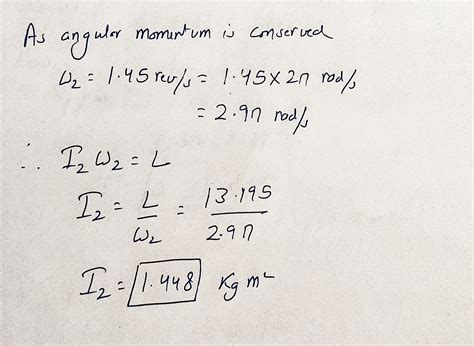 As angular momentum is conserved
ω₂ = 1.45 rev/s = 1.45 × 2π rad/s
= 2.9π rad/s
∴ I₂ ω₂ = L
I₂ = L/ω₂ = 13.195/2.9π
I₂ = 1.448 Kg m²